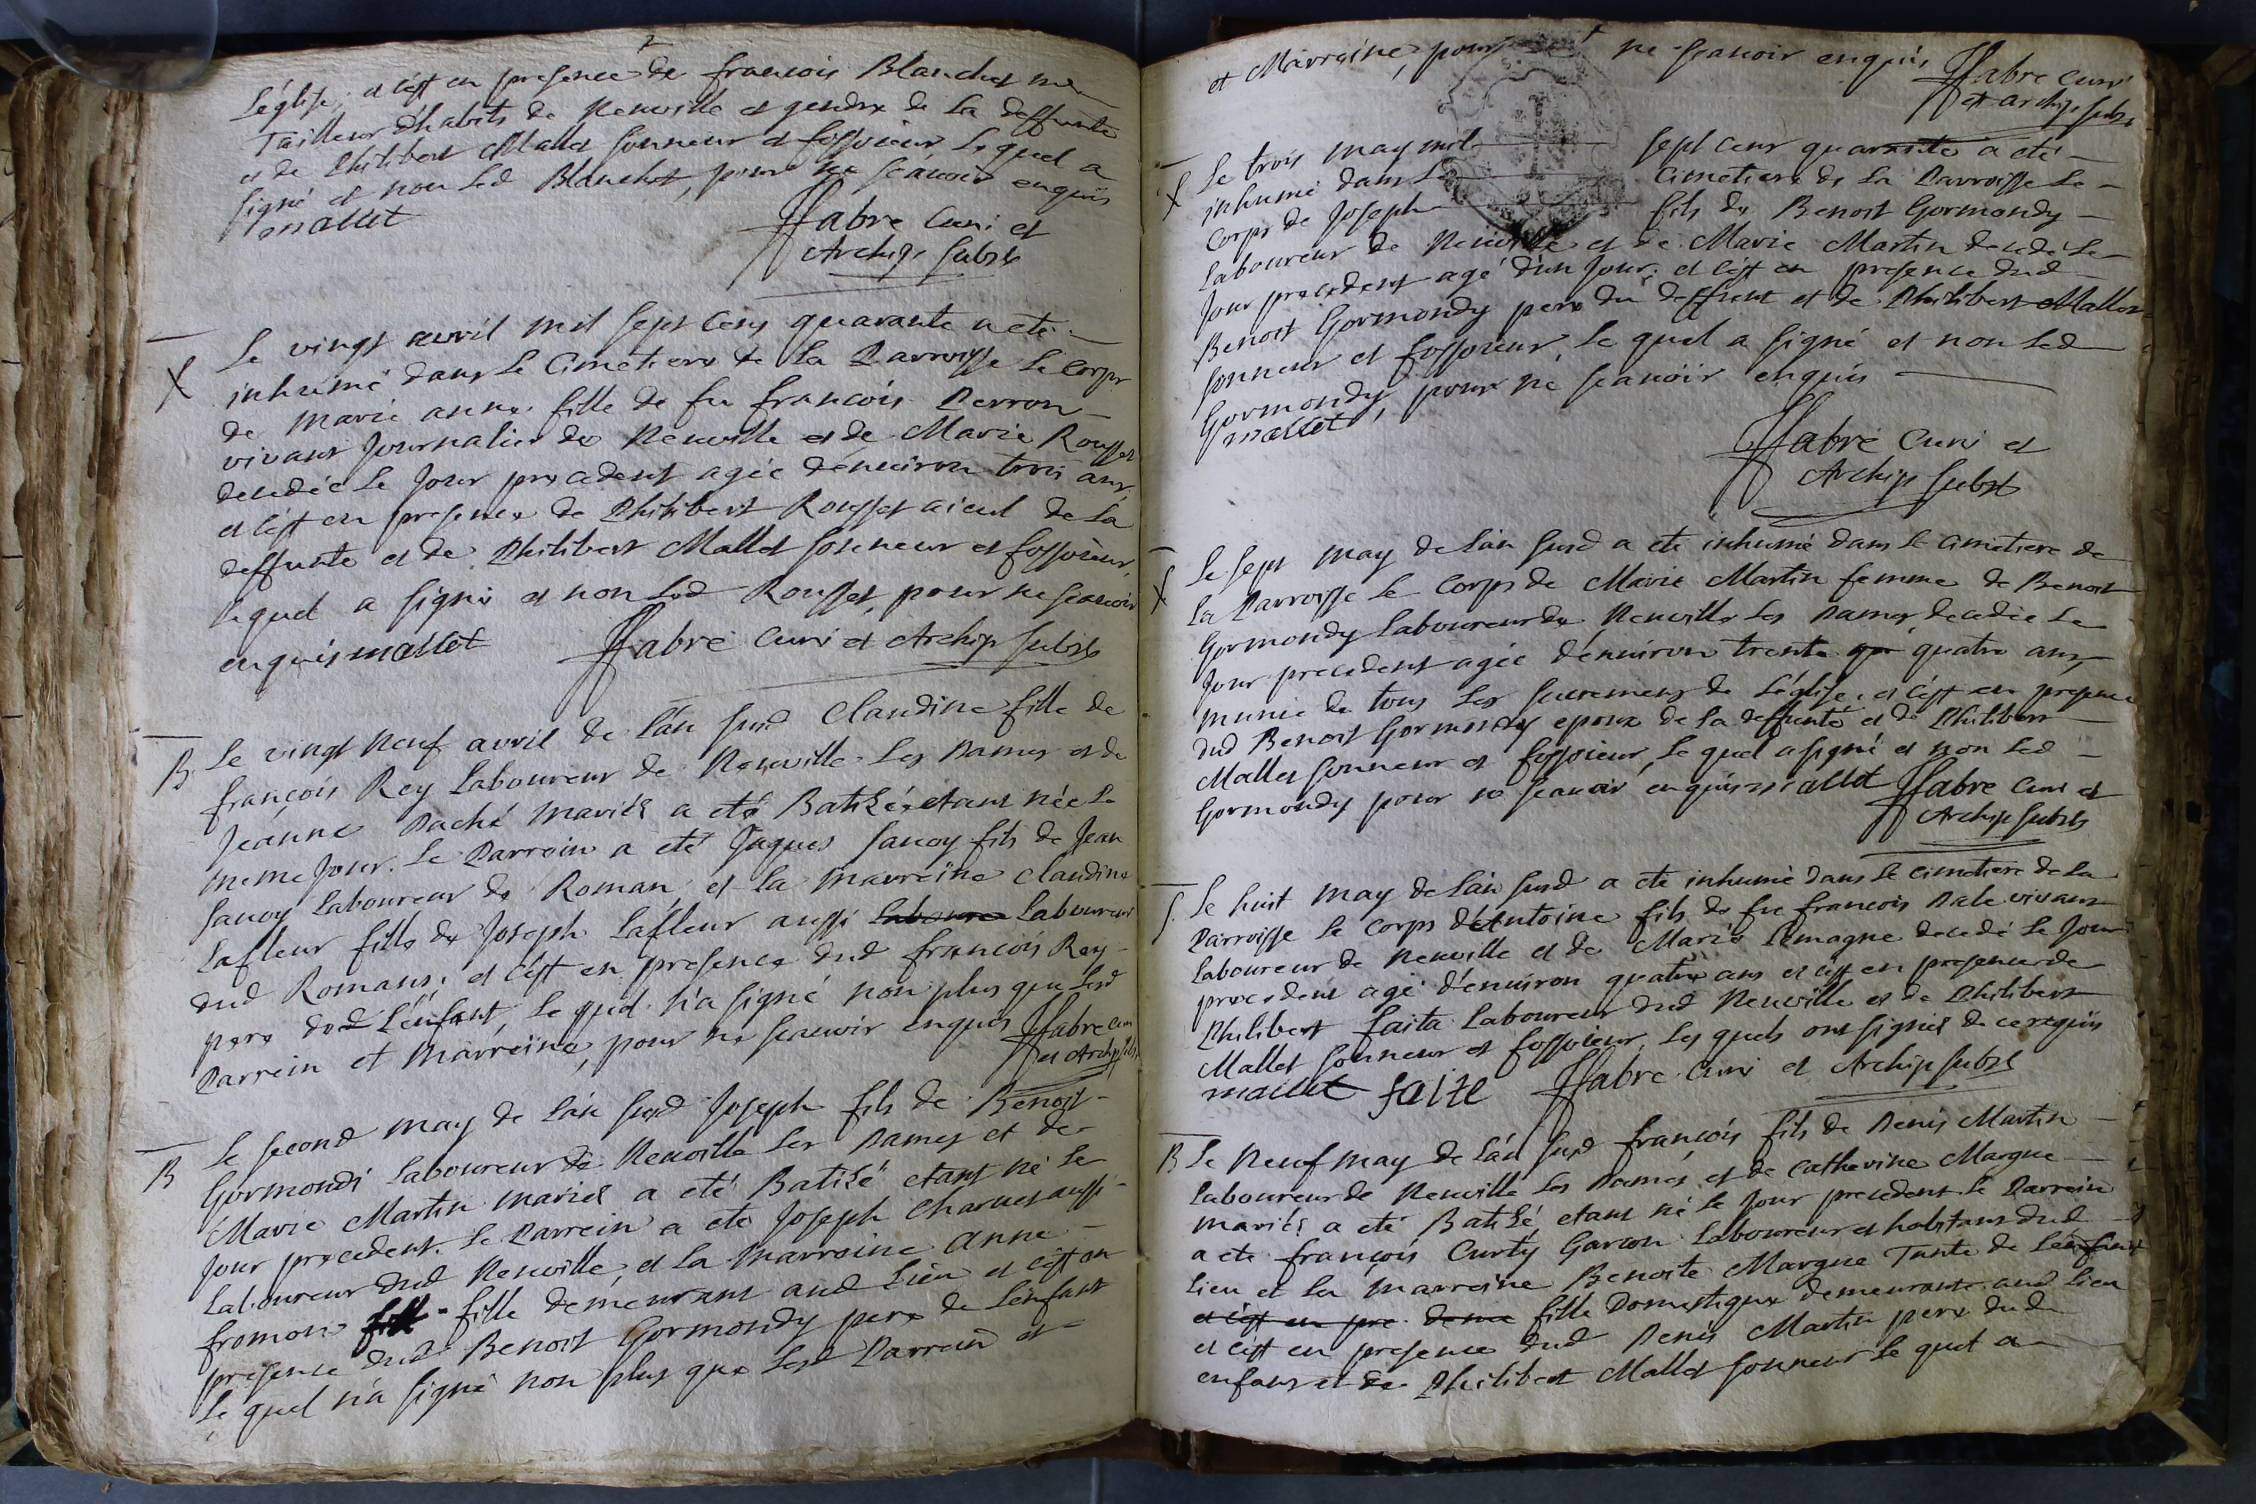 L'église, et c'est en presence de francois Blanchet me
Tailleur d'habits de Neuville et gendre de la deffunte
et de Philibert Mallet sonneur et fossoieur lequel a
signé et non led Blanchet, pour ne scavoir enquis
mallet Ffabre Curé et
Archip. subst
X Le vingt avril mil sept cens quarante a eté
inhumé dans le Cimetiere de la Parroisse le corps
de Marie anne fille de fu francois Perron
vivant Journalier de Neuville et de Marie Rousset
decedée le Jour precedent agée d'environ trois ans,
et c'est en presence de Philibert Rousset aieul de la
deffunte et de Philibert Mallet sonneur et fossoieur,
lequel a signé et non led Rousset, pour ne scavoir
enquis mallet Ffabre Curé et Archip subst
B Le vingt neuf avril de l'an susd Claudine fille de
françois Rey Laboureur de Neuville Les Dames et de
Jeanne Paché mariés a eté Batisée etant née le
meme Jour. Le Parrein a eté Jaques Savoy fils de Jean
Savoy Laboureur de Roman, et la marreine Claudine
Lafleur fille de Joseph Lafleur aussi Laboure Laboureur
dud Romans; et c'est en presence dud francois Rey
pere dud L'enfant, le quel n'a signé non plus que lesd
Parrein et Marreine, pour ne scavoir enquis Ffabre Curé
et Archip subst
B Le second may de l'an susd Joseph fils de Benoit
Gormondi Laboureur de Neuville Les Dames et de
Marie Martin mariés a eté Batisé etant né le
Jour precedent. Le Parrein a eté Joseph Charnet aussi
Laboureur dud Neuville, et la marreine Anne
fromon fill fille demeurant aud Lieu et c'est en
presence dud Benoit Gormondy pere de L'enfant
le quel n'a signé non plus que lesd Parrein et
et Marreine, pour ne scavoir enquis Ffabre Curé
et archip. subst
X Le trois may mil sept cens quarante a eté
inhumé dans le cimetiere de la Parroisse le
corps de Joseph fils de Benoit Gormondy
Laboureur de Neuville et de Marie Martin decedé le
Jour precedent agé d'un Jour; et c'est en presence dud
Benoit Gormondy pere du deffunt et de Philibert Mallet
sonneur et fossoieur, le quel a signé et non led
Gormondy, pour ne scavoir enquis
mallet Ffabre Curé et
Archip subst
X Le sept may de l'an susd a eté inhumé dans le cimetiere de
la Parroisse le corps de Marie Martin femme de Benoit
Gormondy Laboureur de Neuville les Dames decedée le
Jour precedent agée d'environ trente qu quatre ans,
munie de tous les sacremens de L'église, et c'est en presence
dud Benoit Gormondy epoux de la deffunte et de Philibert
Mallet sonneur et fossoieur, le quel a signé et non led
Gormondy pour ne scavoir enquis mallet Ffabre Curé et
Archip subst
Le huit may de l'an susd a eté inhumé dans le cimetiere de la
Parroisse le corps d'Antoine fils de fu francois Pale vivant
Laboureur de Neuville et de Marie Lemagne decedé le Jour
precedent agé d'environ quatre ans et c'est en presence de
Philibert faita Laboureur dud Neuville et de Philibert
Mallet sonneur et fossoieur, les quels ont signés de ce requis
mallet faite Ffabre Curé et Archip subst
B Le Neuf may de l'an susd françois fils de Denis Martin
Laboureur de Neuville les Dames et de Catherine Margue
mariés a eté Batisé, etant né le Jour precedent. Le Parrein
a eté françois Curty Garcon Laboureur et habitant dud
Lieu et la marreine Benoite Margue Tante de L'enfant
et c'est en pre deme fille Domestique demeurante aud Lieu
et c'est en presence dud Denis Martin pere dud
enfant et de Philibert Mallet sonneur le quel a